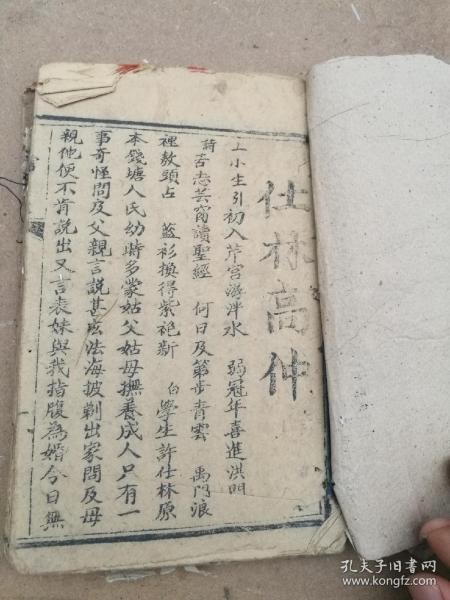 仕林高仲
上小生引初入芹宮游泮水 弱冠年喜進洪門
詩苦志芸窗讀聖經 何日及第步青雲 禹門浪
裡敖頭占 藍衫換得紫袍新 白學生許仕林原
本錢塘人氏幼時多蒙姑父姑母撫養成人只有一
事奇怪問及父親言說甚庅法海披剃出家問及母
親他便不肯說出又言表妹與我指腹為婚今日無
孔夫子旧书网
www.kongfz.com